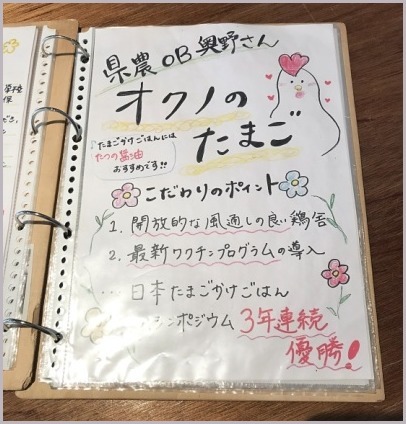 県農OB奥野さん
オクノの
たまご
たまごかけごはんには
たつの醤油
おすすめです!!
こだわりのポイント
1. 開放的な風通しの良い鶏舎
2. 最新ワクチンプログラムの導入
... 日本たまごかけごはん
シンポジウム 3年連続
優勝!